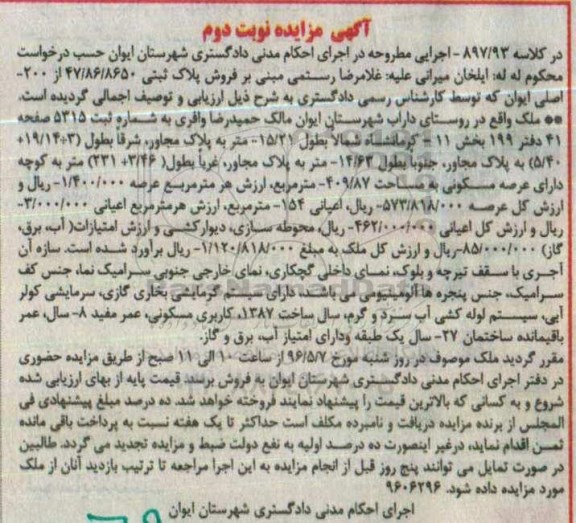 آگهی مزایده نوبت دوم
در کلاسه ۸۹۷/۹۳ - اجرایی مطروحه در اجرای احکام مدنی دادگستری شهرستان ایوان حسب درخواست
محکوم له له: ایلخان میرانی علیه: غلامرضا رستمی مبنی بر فروش پلاک ثبتی ۴۷/۸۶/۸۶۵۰ از ۲۰۰-
اصلی ایوان که توسط کارشناس رسمی دادگستری به شرح ذیل ارزیابی و توصیف اجمالی گردیده است.
** ملک واقع در روستای داراب شهرستان ایوان مالک حمیدرضا وافری به شماره ثبت ۵۳۱۵ صفحه
۴۱ دفتر ۱۹۹ بخش ۱۱ - کرمانشاه شمالاً بطول ۱۵/۲۱- متر به پلاک مجاور، شرقاً بطول (۳+۱۹/۱۴+
۵/۴۰) به پلاک مجاور، جنوباً بطول ۱۴/۶۳- متر به پلاک مجاور، غرباً بطول( ۳/۴۶+ ۲۳۱) متر به کوچه
دارای عرصه مسکونی به مساحت ۴۰۹/۸۷- مترمربع، ارزش هر مترمربع عرصه ۱/۴۰۰/۰۰۰- ریال و
ارزش کل عرصه ۵۷۳/۸۱۸/۰۰۰- ریال، اعیانی ۱۵۴- مترمربع، ارزش هرمترمربع اعیانی ۳/۰۰۰/۰۰۰-
ریال و ارزش کل اعیانی ۴۶۲/۰۰۰/۰۰۰- ریال، محوطه سازی، دیوارکشی و ارزش امتیازات( آب، برق،
گاز) ۸۵/۰۰۰/۰۰۰-ریال و ارزش کل ملک به مبلغ ۱/۱۲۰/۸۱۸/۰۰۰- ریال برآورد شده است. سازه آن
آجری با سقف تیرچه و بلوک، نمای داخلی گچکاری، نمای خارجی جنوبی سرامیک نما، جنس کف
سرامیک، جنس پنجره ها آلومینیومی می باشد، دارای سیستم گرمایشی بخاری گازی، سرمایشی کولر
آبی، سیستم لوله کشی آب سرد و گرم، سال ساخت ۱۳۸۷، کاربری مسکونی، عمر مفید ۸- سال، عمر
باقیمانده ساختمان ۲۷- سال یک طبقه ودارای امتیاز آب، برق و گاز.
مقرر گردید ملک موصوف در روز شنبه مورخ ۹۶/۵/۷ از ساعت ۱۰ الی ۱۱ صبح از طریق مزایده حضوری
در دفتر اجرای احکام مدنی دادگستری شهرستان ایوان به فروش برسد. قیمت پایه از بهای ارزیابی شده
شروع و به کسانی که بالاترین قیمت را پیشنهاد نمایند فروخته خواهد شد. ده درصد مبلغ پیشنهادی فی
المجلس از برنده مزایده دریافت و نامبرده مکلف است حداکثر تا یک هفته نسبت به پرداخت باقی مانده
ثمن اقدام نماید، درغیر اینصورت ده درصد اولیه به نفع دولت ضبط و مزایده تجدید می گردد. طالبین
در صورت تمایل می توانند پنج روز قبل از انجام مزایده به این اجرا مراجعه تا ترتیب بازدید آنان از ملک
مورد مزایده داده شود. ۹۶۰۶۲۹۶
اجرای احکام مدنی دادگستری شهرستان ایوان